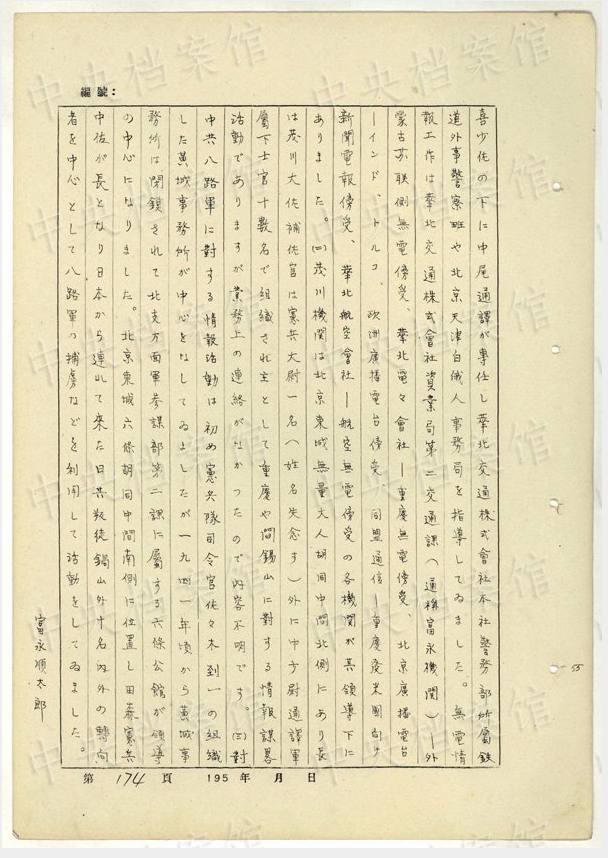 編號：
喜少佐の下に中尾通譯が專任し華北交通株式會社本社警務部所屬鉄
道外事警察班や北京天津白俄人事務局を指導してゐました。無電情
報工作は華北交通株式會社資業局第二交通課（通稱富永機関）—外
蒙古苏联側無電傍受、華北電々會社—重慶無電傍受、北京廣播電台
—インド、トルコ、欧洲廣播電台傍受、同盟通信—重慶英米國向け
新聞電報傍受、華北航空會社—航空無電傍受の各機関が其領導下に
ありました。(二)茂川機関は北京東城無量大人胡同中間北側にあり長
は茂川大佐補佐官は憲兵大尉一名（姓名失念す）外に中少尉通譯軍
屬下士官十数名で組織され主として重慶や閻錫山に對する情報謀畧
活動でありますが業務上の連絡がなかつたので内容不明です。(三)對
中共八路軍に対する情報活動は初め憲兵隊司令官佐々木到一の組織
した黄城事務所が中心をなしてゐましたが一九四一年頃から黄城事
務所は閉鎖されて北支方面軍参謀部第二課に屬する六條公館が領導
の中心になりました。北京東城六條胡同中間南側に位置し田 憲兵
中佐が長となり日本から連れて来た日共叛徒鍋山外十名内外の轉向
者を中心として八路軍の捕虜などを利用して活動をしてゐました。
富永順太郎
第 174 頁 195 年 月 日
55
中央档案馆